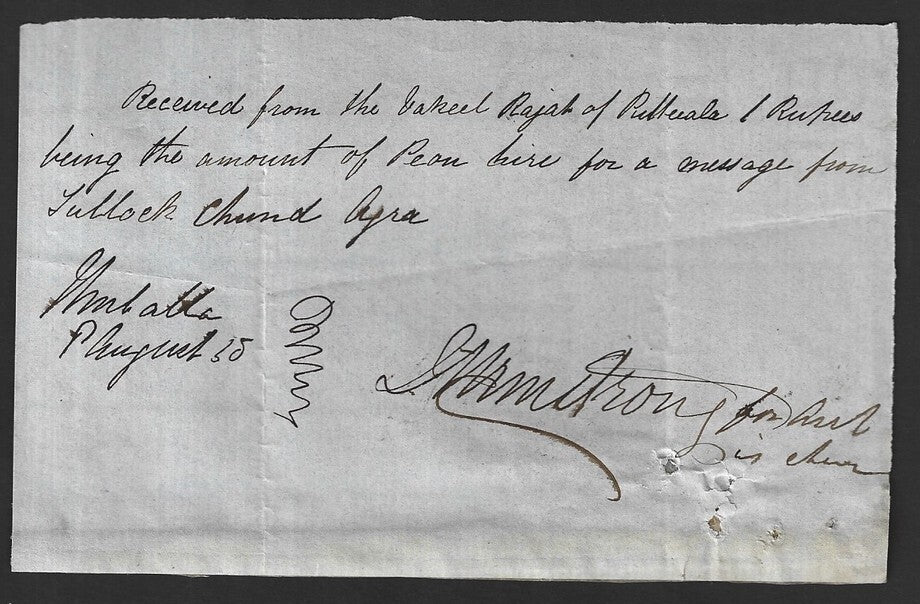 Received from the Vakeel Rajah of Putteeala 1 Rupees
being the amount of Peon hire for a message from
Tullock Chund Agra
Umballa
August 55
Armstrong
in char